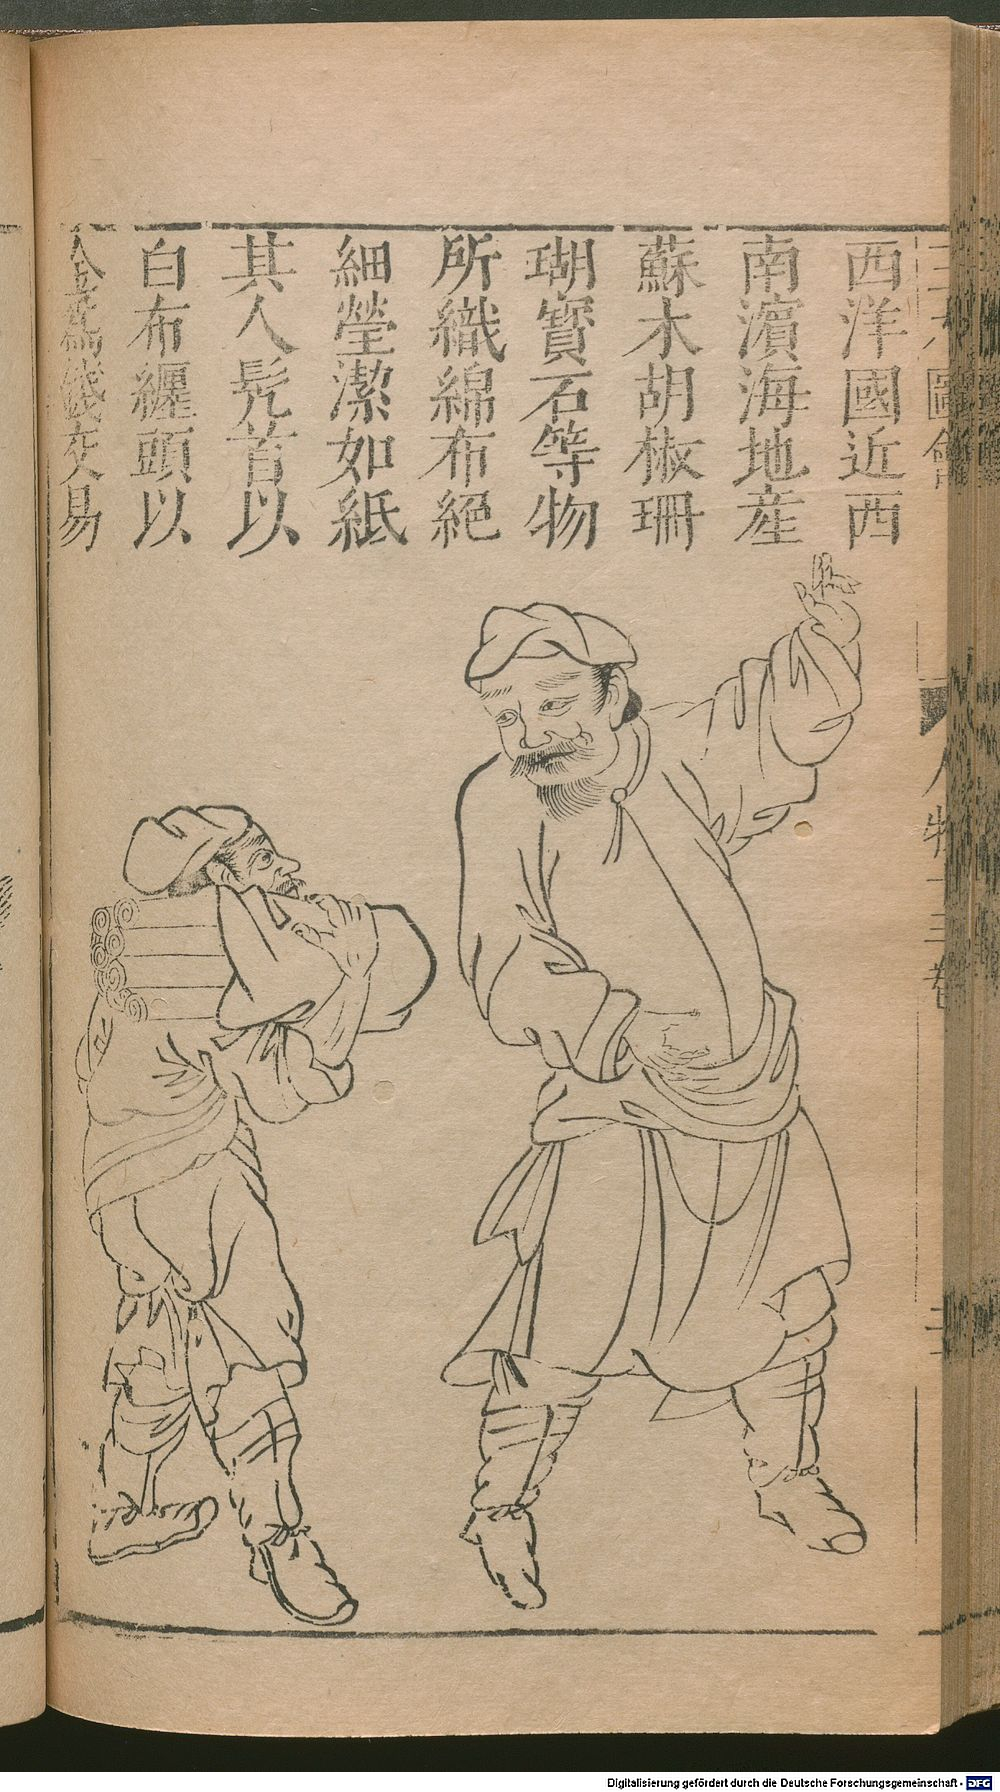 西洋國近西
南濵海地産
蘇木胡椒珊
瑚寳石等物
所織綿布絕
細瑩潔如紙
其人髠首以
白布纏頭以
金爲錢交易
人物十三卷
Digitalisierung gefördert durch die Deutsche Forschungsgemeinschaft - DFG